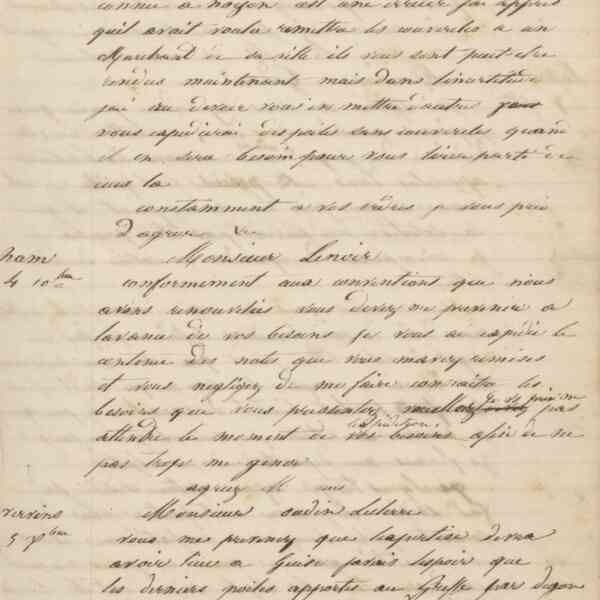 connue a noyon est une erreur jai appris
quil avait voulu remettre les couvercles a un
Marchand de sa ville ils vous sont peut etre
rendus maintenant mais dans lincertitude
jai cru devoir vous en mettre dautres
vous expedierai des poiles sans couvercles quand
il en sera besoin pour vous tirer parti de
ceux la
constamment a vos ordres je vous prie
dagreer &c
ham
4 10bre
Monsieur Lenoir
conformement aux conventions que nous
avons renouvelées vous devez me prevenir a
lavance de vos besoins je vous ai expédié le
contenu des notes que vous mavez remises
et vous negligez de me faire connaitre les
besoins que vous pressentez je te prie ne pas
attendre le moment de vos besoins afin de ne
pas trop me gener
agreez M
vervins
5 Xbre
Monsieur oudin Leclere
vous me prevenez que lexpertise devra
avoir lieu a Guise javais lespoir que
les derniers poiles apportes au Greffe par